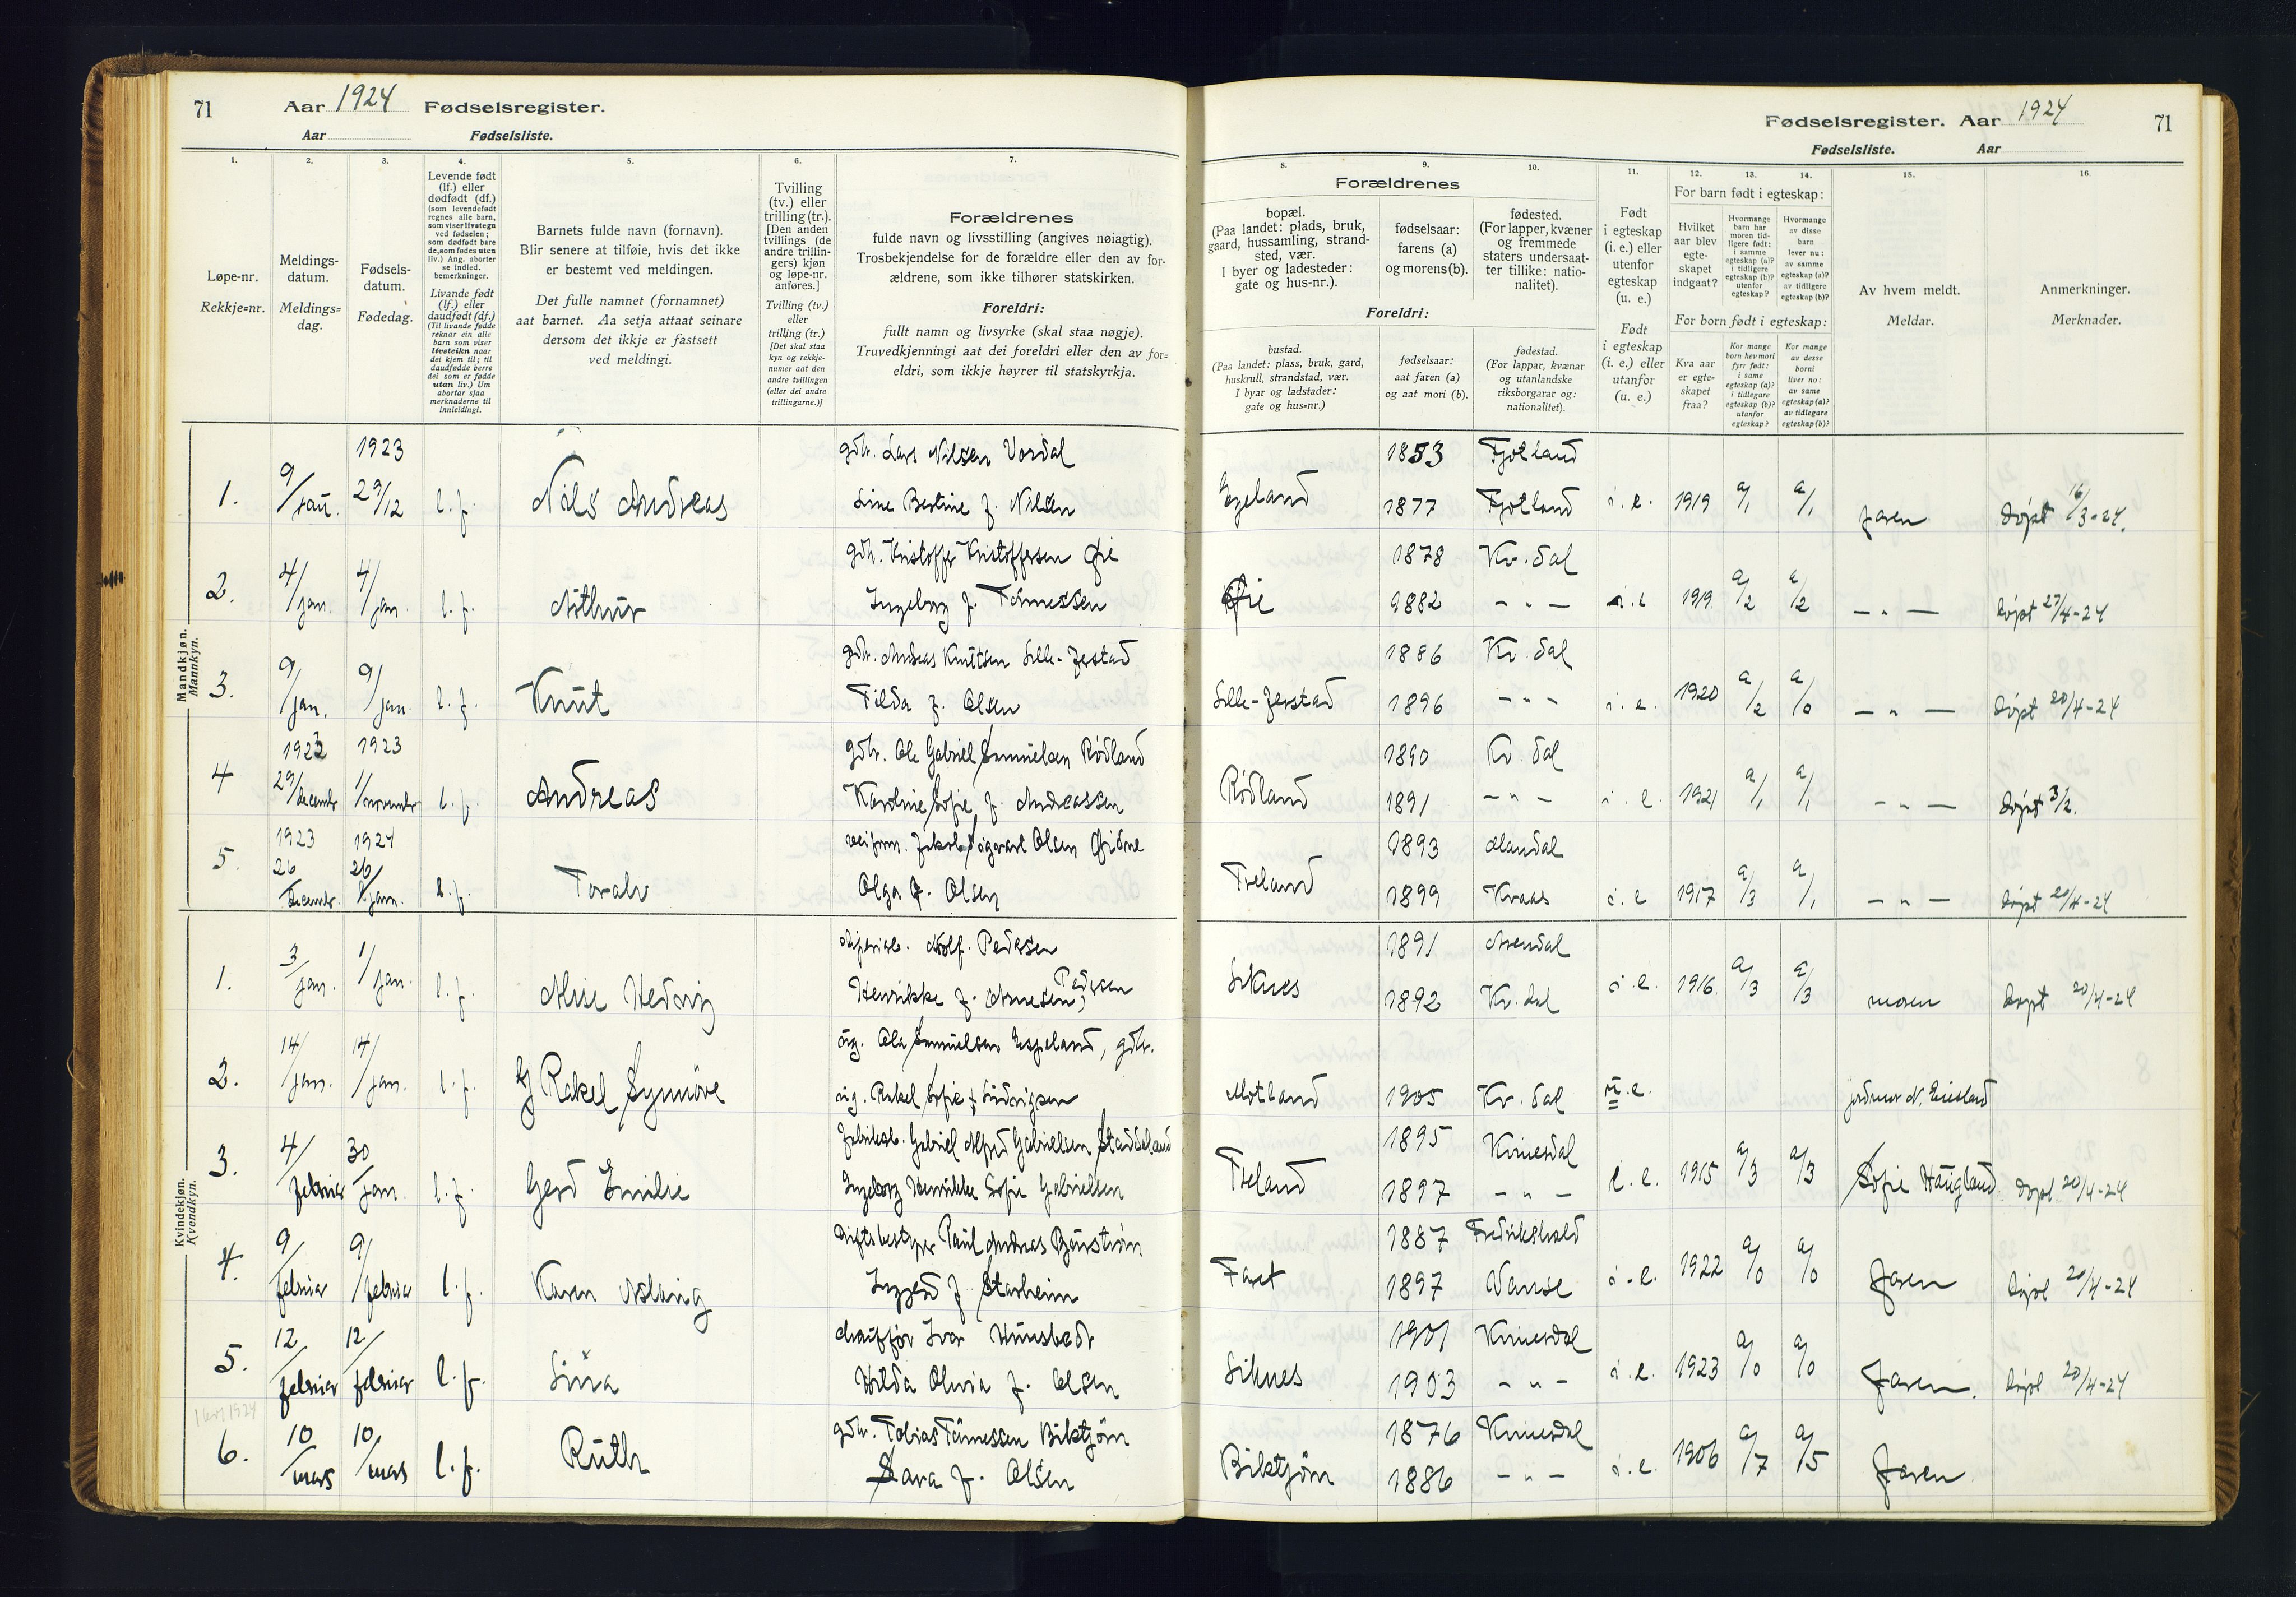 71 Aar 1924 Fødselsregister.
Aar Fødselsliste.
Fødselsregister. Aar 1924 71
Fødselsliste. Aar
1.
Løpe-nr.
Rekkje=nr.
2.
Meldings-
datum.
Meldings=
dag.
3.
Fødsels-
datum.
Fødedag.
4.
Levende født
(lf.) eller
dødfødt (df.)
(som levendefødt
regnes alle barn,
som viser livstegn
ved fødselen;
som dødfødt bare
de, som fødes uten
liv.) Ang. aborter
se indled.
bemerkninger.
Livande født
(lf.) eller
daudfødt (df.)
(Til livande fødde
reknar ein alle
barn som viser
livsteikn naar
dei kjem til; til
daudfødde berre
dei som er fødde
utan liv.) Um
abortar sjaa
merknaderne til
innleidingi.
5.
Barnets fulde navn (fornavn).
Blir senere at tilføie, hvis det ikke
er bestemt ved meldingen.
Det fulle namnet (fornamnet)
aat barnet. Aa setja attaat seinare
dersom det ikkje er fastsett
ved meldingi.
6.
Tvilling
(tv.) eller
trilling (tr.).
[Den anden
tvillings (de
andre trillin-
gers) kjøn
og løpe-nr.
anføres.]
Tvilling (tv.)
eller
trilling (tr.)
[Det skal staa
kyn og rekkje-
numer aat den
andre tvillingen
(eller dei andre
trillingarne.)]
7.
Forældrenes
fulde navn og livsstilling (angives nøiagtig).
Trosbekjendelse for de forældre eller den av for-
ældrene, som ikke tilhører statskirken.
Foreldri:
fullt namn og livsyrke (skal staa nøgje).
Truvedkjenningi aat dei foreldri eller den av for=
eldri, som ikkje høyrer til statskyrkja.
Forældrenes
8.
bopæl.
(Paa landet: plads, bruk,
gaard, hussamling, strand-
sted, vær.
I byer og ladesteder:
gate og hus-nr.).
9.
fødselsaar:
farens (a)
og morens (b).
10.
fødested.
(For lapper, kvæner
og fremmede
staters undersaat-
ter tillike: natio-
nalitet).
Foreldri:
bustad.
(Paa landet: plass, bruk, gard,
huskrull, strandstad, vær.
I byar og ladstader:
gate og hus=nr.)
fødselsaar:
aat faren (a)
og aat mori (b).
fødestad.
(For lappar, kvænar
og utanlandske
riksborgarar og:
nationalitet).
11.
Født
i egteskap
(i. e.) eller
utenfor
egteskap
(u. e.)
Født
i egteskap
(i. e.) eller
utanfor
(u. e.)
12. 13. 14.
For barn født i egteskap:
Hvilket
aar blev
egte-
skapet
indgaat?
Hvormange
barn har
moren tid-
ligere født:
i samme
egteskap (a)?
i tidligere
egteskap (b)?
utenfor
egteskap?
Hvormange
av disse
barn
lever nu:
av samme
egteskap (a)?
av tidligere
egteskap (b)?
For born født i egteskap:
Kva aar
er egte=
skapet
fraa?
Kor mange
born hev mori
fyrr født:
i same
egteskap (a)?
i tidlegare
egteskap (b)?
utanfor
egteskap?
Kor mange
av desse
borni
liver no:
av same
egteskap (a)?
av tidlegare
egteskap (b)?
15.
Av hvem meldt.
Meldar.
16.
Anmerkninger.
Merknader.
Mandkjøn.
Mannkyn.
1. 9/jan. 1923 29/12 l. f. Nils Andreas gdbr. Lars Nilsen Vordal 1853 Fjotland
Line Bertine f. Nilsen 1877 Fjotland i. e. 1919 a/1 a/1 faren døpt 16/3-24.
2. 4/jan. 4/jan. l. f. Arthur gdbr. Kristoffer Kristoffersen Øie 1878 Kv.dal
Ingeborg f. Tønnessen Øie 1882 - " - i. e 1919. a/2 a/2 - " - døpt 27/4-24
3. 9/jan. 9/jan. l. f. Knut gdbr. Andreas Knutsen Lille-Jerstad 1886 Kv.dal
Tilda f. Olsen Lille-Jerstad 1896 - " - i. e. 1920 a/2 a/0 - " - døpt 20/4-24
4 29/decembr 1923 1/novembr l. f. Andreas gdbr. Ole Gabriel Samuelsen Rødland 1890 Kv.dal
Karoline Sofie f. Andreassen Rødland 1891 - " - i. e. 1921 a/1 a/1 - " - døpt 3/2.
5. 1923 26/decembr. 1924 l. f. Toralv Jakob Sigvart Olsen 1893 Mandal
Olga f. Olsen Træland 1899 Kvaas i. e 1917 a/3 a/1 - " - døpt 20/4-24
Kvindekjøn.
Kvendkyn.
1. 3/jan. 1/jan. l. f. Hedvig Adolf Pedersen 1891 Arendal
Henrikke f. Arnesen, Pedersen Liknes 1892 Kv.dal i. e. 1916. a/3 a/3 moren døpt 20/4-24
2. 14/jan. 14/jan. l. f. Rakel Synnøve ug. Ole Samuelsen Espeland, gdbr.
ug. Rakel Sofie Ludvigsen Motland 1905 Kv.dal u. e. jordmor N. Eiesland
3. 4/februar 30/jan. l. f. Gerd Emilie Fabrikab. Gabriel Alfred Gabrielsen Staddeland 1895 Kvinesdal
Ingeborg Henrikke Sofie Gabrielsen Træland 1897 - " - i. e. 1915 a/3 a/3 Sofie Haugland døpt 20/4-24
4. 9/februar 9/februar l. f. Karen Aslaug Driftsbestyrer Paul Andreas 1887 Fredrikshald
Inggerd f. Starheim Faret 1897 Vanse i. e. 1922 a/0 a/0 faren døpt 20/4-24
5. 12/februar 12/februar l. f. chauffør Ivar Hunsbedt 1901 Kvinesdal
Hilda Olivia f. Olsen Liknes 1903 - " - i. e. 1923 a/0 a/0 faren. døpt 20/4-24
6. 10/mars 10/mars l. f. Ruth gdbr. Tobias Tønnessen Birktjøn 1876 Kvinesdal
Sara f. Olsen Birktjøn 1886 - " - i. e. 1906 a/7 a/5 faren.